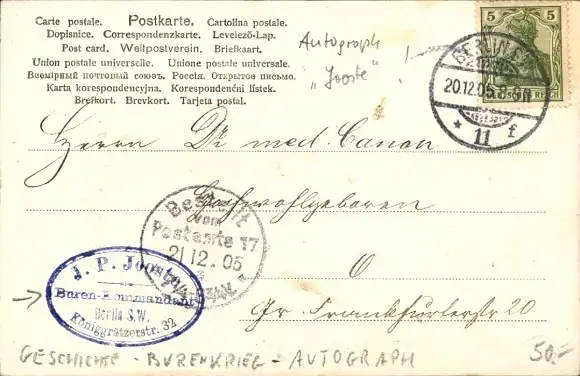 Carte postale. Postkarte. Cartolina postale.
Dopisnice. Correspondenzkarte. Levelező-Lap.
Post card. Weltpostverein. Briefkaart.
Union postale universelle. Unione postale universale.
Всемірный почтовый союзъ. Россія. Открытое письмо.
Karta korespondencyjna. Korespondenční lístek.
Brefkort. Brevkort. Tarjeta postal.
Autograph
"Jooste"
5 5
REICH
BERLIN S.W.
20.12.05.8-9N
* 11 f
Herrn Dr med. Canon
Hochwohlgeboren
O
Gr. Frankfurterstr 20
Bestellt
vom
Postamte 17
21|12.05
J. P. Jooste
Buren-Kommandant
Berlin S.W.
Königgrätzerstr. 32
GESCHICHTE - BURENKRIEG - AUTOGRAPH
50.-